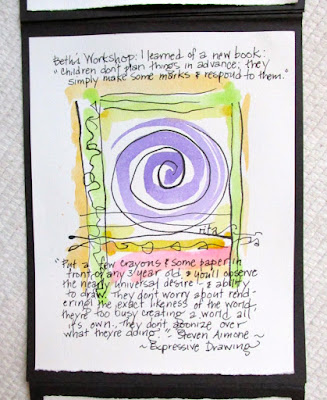 Beth's Workshop: I learned of a new book:
"Children don't plan things in advance; they
simply make some marks & respond to them."
rita
"Put a few crayons & some paper in
front of any 3 year old & you'll observe
the nearly universal desire & ability
to draw. They don't worry about rend-
ering the exact likeness of the world,
they're too busy creating a world all
its own. They don't agonize over
what they're adding." - Steven Aimone ~
~ Expressive Drawing